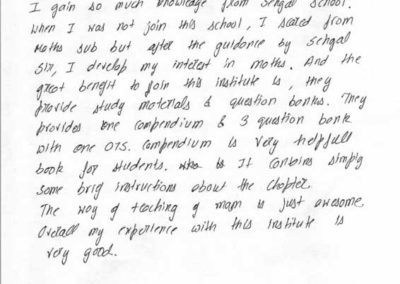 I gain so much knowledge from Sehgal School.
When I was not join this school, I scared from
Maths sub but after the guidance by Sehgal
Sir, I develop my interest in maths. And the
great benefit to join this institute is, they
provide study materials & question banks. They
provides one compendium & 3 question bank
with one OTS. Compendium is very helpfull
book for students. It contains
some brig instructions about the chapter.
The way of teaching of mam is just awesome.
Overall my experience with this institute is
very good.